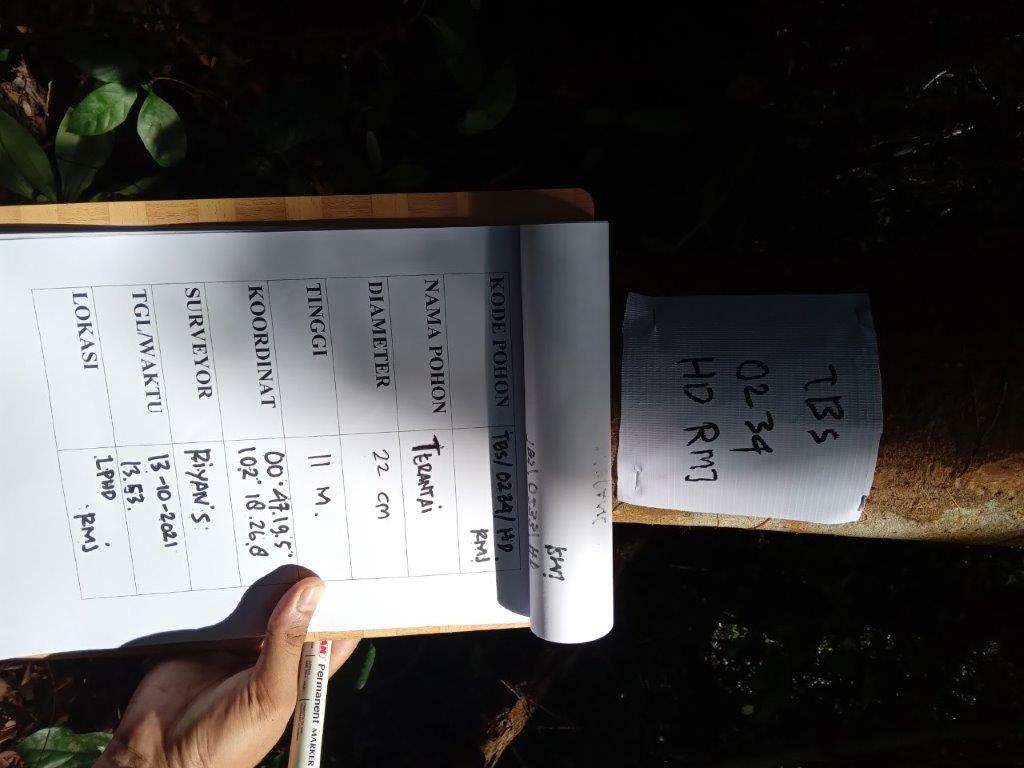 TBS
0234
HD RMJ
KODE POHON TBS/0234/HD
RMJ
NAMA POHON TERANTAI
DIAMETER 22 CM
TINGGI 11 M.
KOORDINAT 00°47.19.5"
102° 18.26.8
SURVEYOR RIYAN'S
TGL/WAKTU 13-10-2021
13.53.
LOKASI LPHD
RMJ
Permanent MARKER